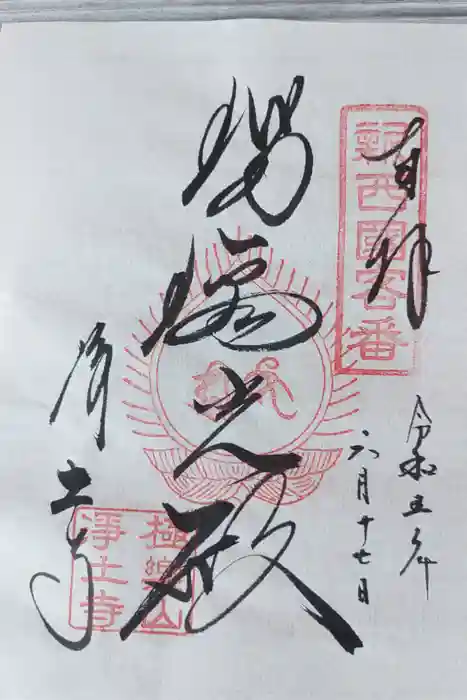 奉拝
新西國客番
令和五年
六月十七日
瑠璃光殿
浄土寺
極樂山
淨土寺